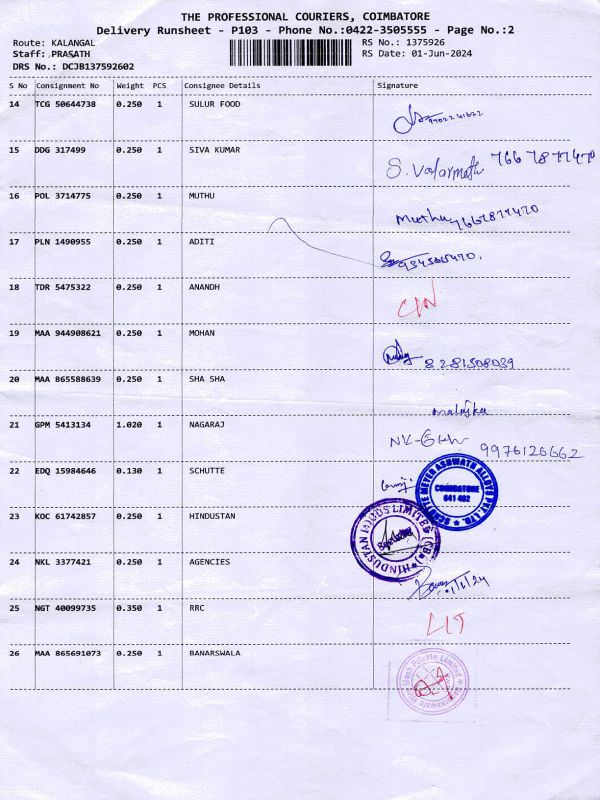 THE PROFESSIONAL COURIERS, COIMBATORE
Delivery Runsheet - P103 - Phone No.:0422-3505555 - Page No.:2
Route: KALANGAL RS No.: 1375926
Staff: PRASATH RS Date: 01-Jun-2024
DRS No.: DCJB137592602
S No Consignment No Weight PCS Consignee Details Signature
14 TCG 50644738 0.250 1 SULUR FOOD
15 DDG 317499 0.250 1 SIVA KUMAR
S. Valarmathi
16 POL 3714775 0.250 1 MUTHU
Muthu
17 PLN 1490955 0.250 1 ADITI
18 TDR 5475322 0.250 1 ANANDH
19 MAA 944908621 0.250 1 MOHAN
8281508039
20 MAA 865588639 0.250 1 SHA SHA
21 GPM 5413134 1.020 1 NAGARAJ
9976126662
22 EDQ 15984646 0.130 1 SCHUTTE
SCHUTTE MEYER ASHWATH ALLOYS PVT. LTD.
COIMBATORE
641 402
23 KOC 61742857 0.250 1 HINDUSTAN
HINDUSTAN FOODS LIMITED (CBE)
24 NKL 3377421 0.250 1 AGENCIES
25 NGT 40099735 0.350 1 RRC
26 MAA 865691073 0.250 1 BANARSWALA
Private Limited